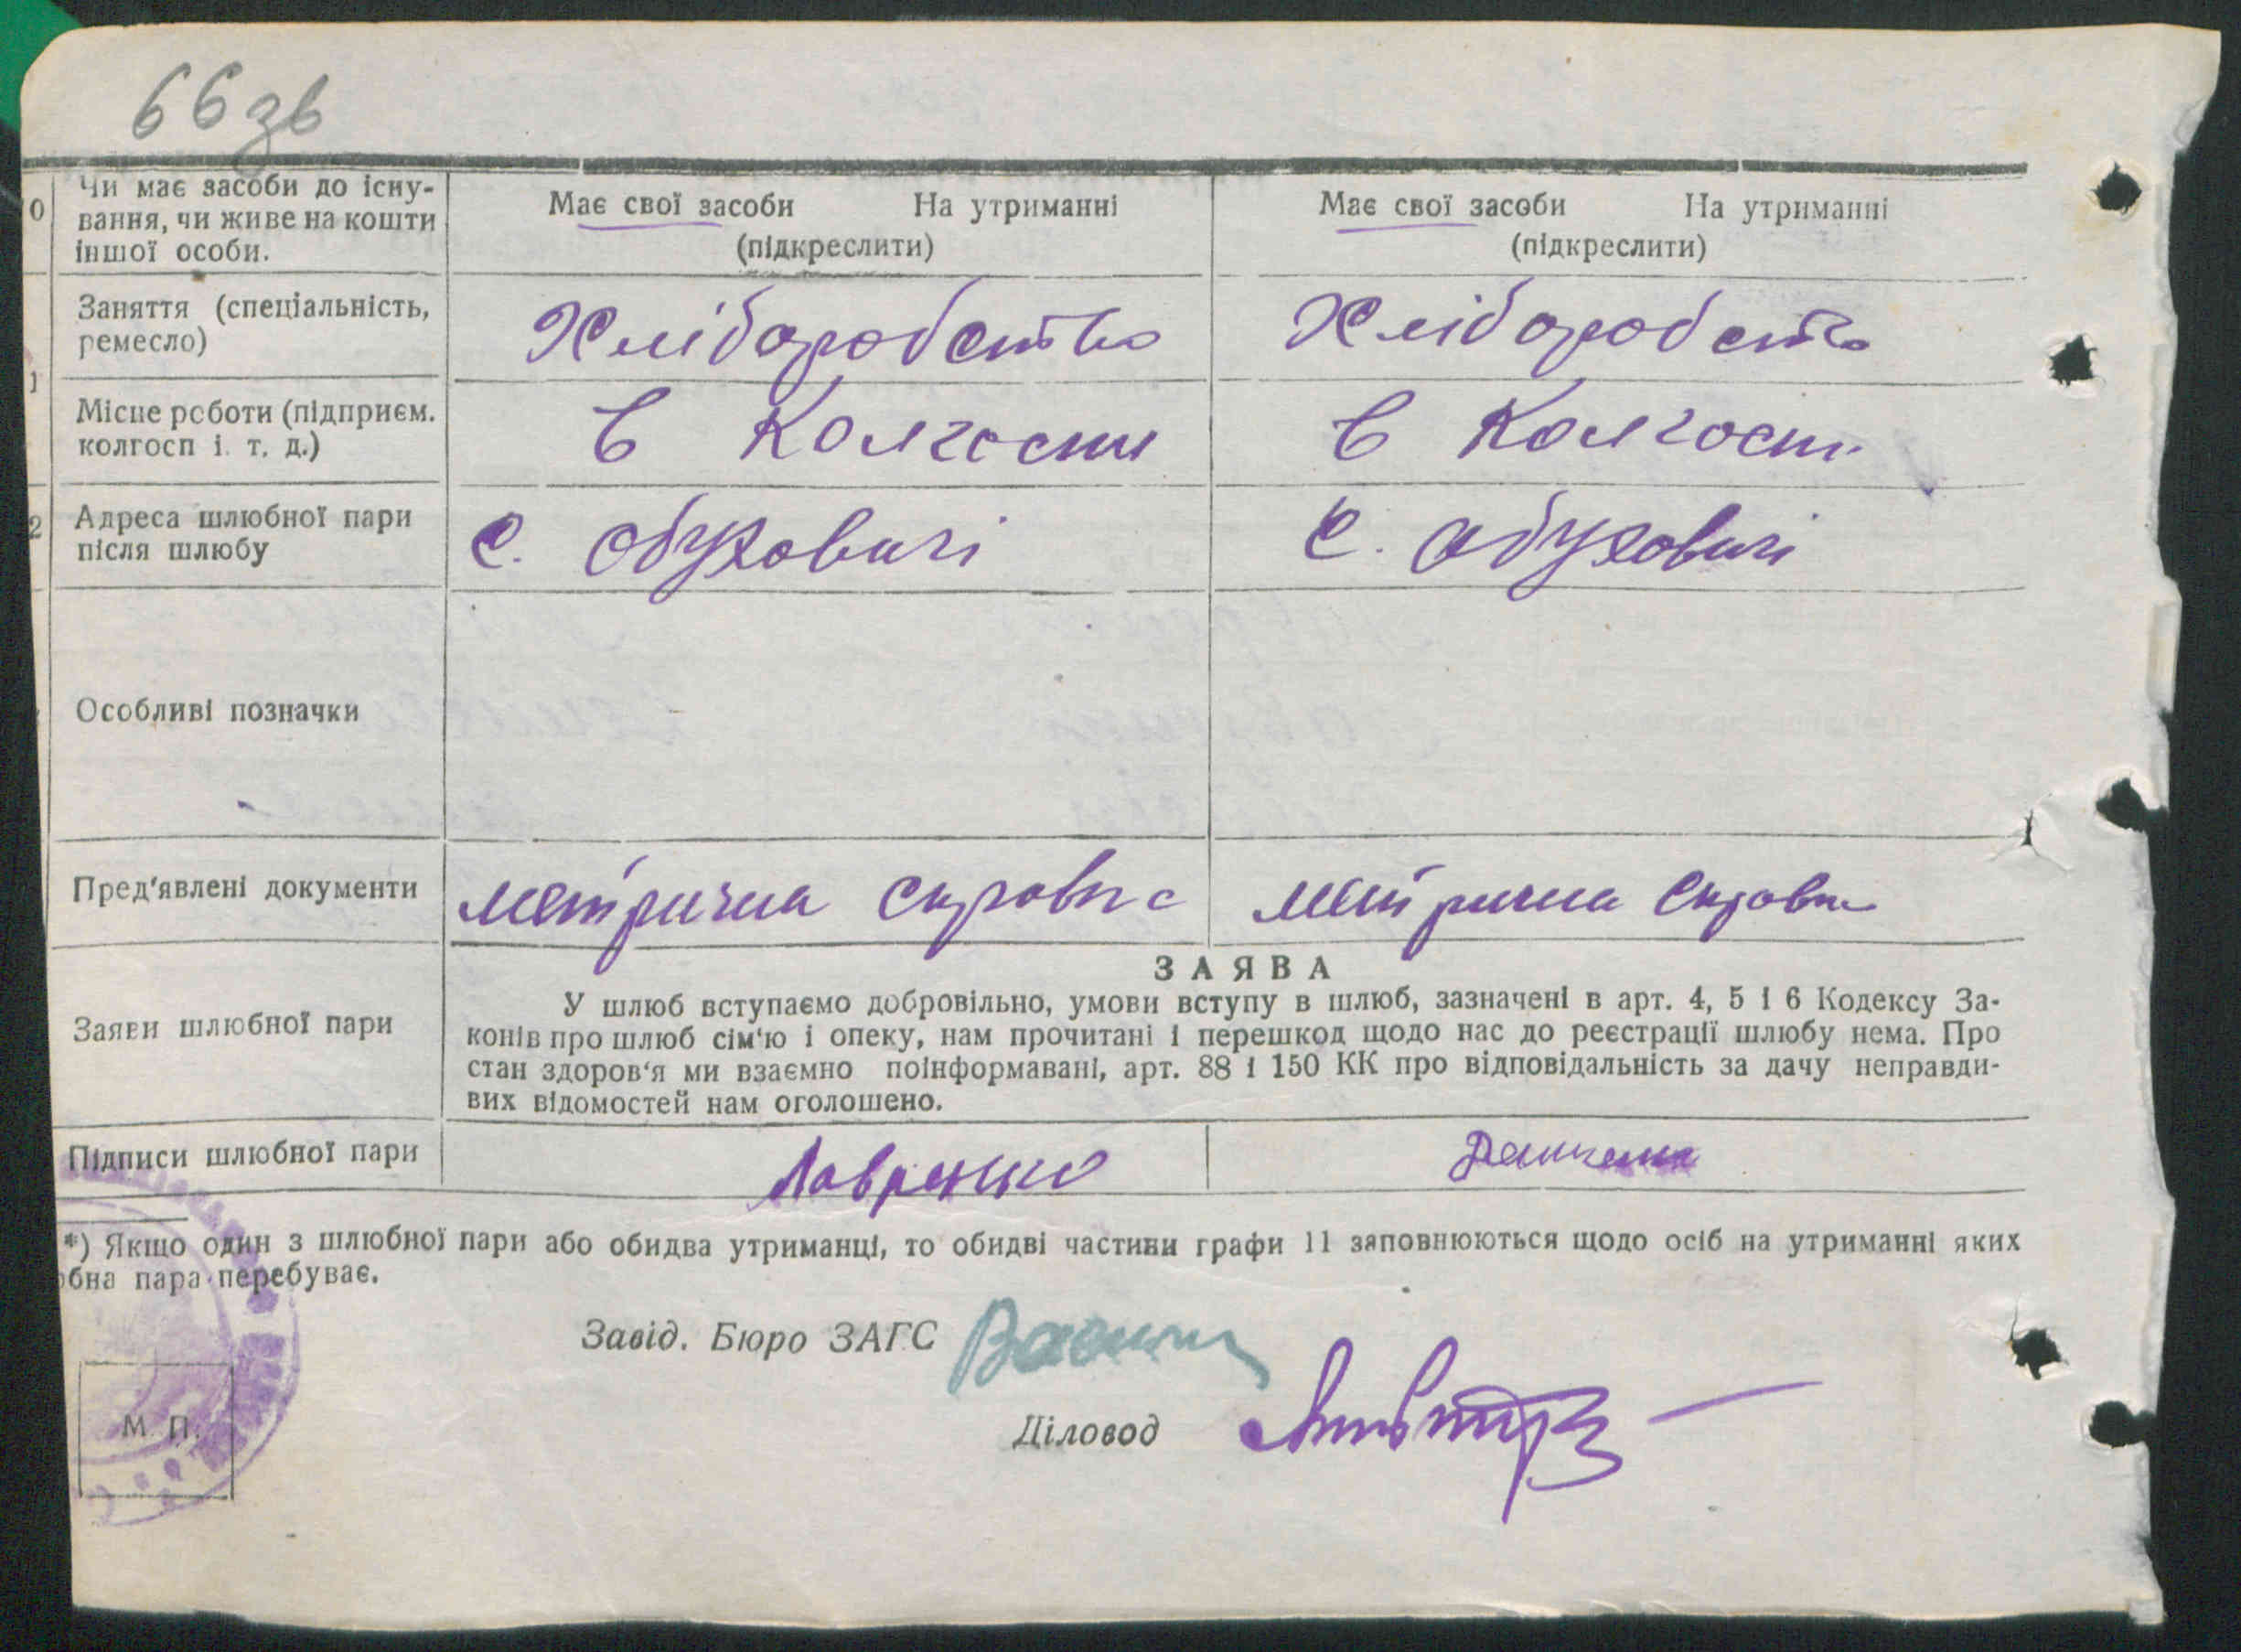 66зв
0 Чи має засоби до існу-
вання, чи живе на кошти
іншої особи.
Має свої засоби На утриманні
(підкреслити)
Має свої засоби На утриманні
(підкреслити)
1 Заняття (спеціальність,
ремесло)
Хліборобство
Хліборобство
Місце роботи (підприєм.
колгосп і. т. д.)
в колгоспі
в колгоспі
2 Адреса шлюбної пари
після шлюбу
с. Обуховичі
с. Обуховичі
Особливі позначки
Пред'явлені документи
метрична справка
метрична справка
Заяви шлюбної пари
ЗАЯВА
У шлюб вступаємо добровільно, умови вступу в шлюб, зазначені в арт. 4, 5 і 6 Кодексу За-
конів про шлюб сім'ю і опеку, нам прочитані і перешкод щодо нас до реєстрації шлюбу нема. Про
стан здоров'я ми взаємно поінформавані, арт. 88 і 150 КК про відповідальність за дачу неправди-
вих відомостей нам оголошено.
Підписи шлюбної пари
Лавренко
*) Якщо один з шлюбної пари або обидва утриманці, то обидві частини графи 11 заповнюються щодо осіб на утриманні яких
бна пара перебуває.
Завід. Бюро ЗАГС
Діловод
М. П.